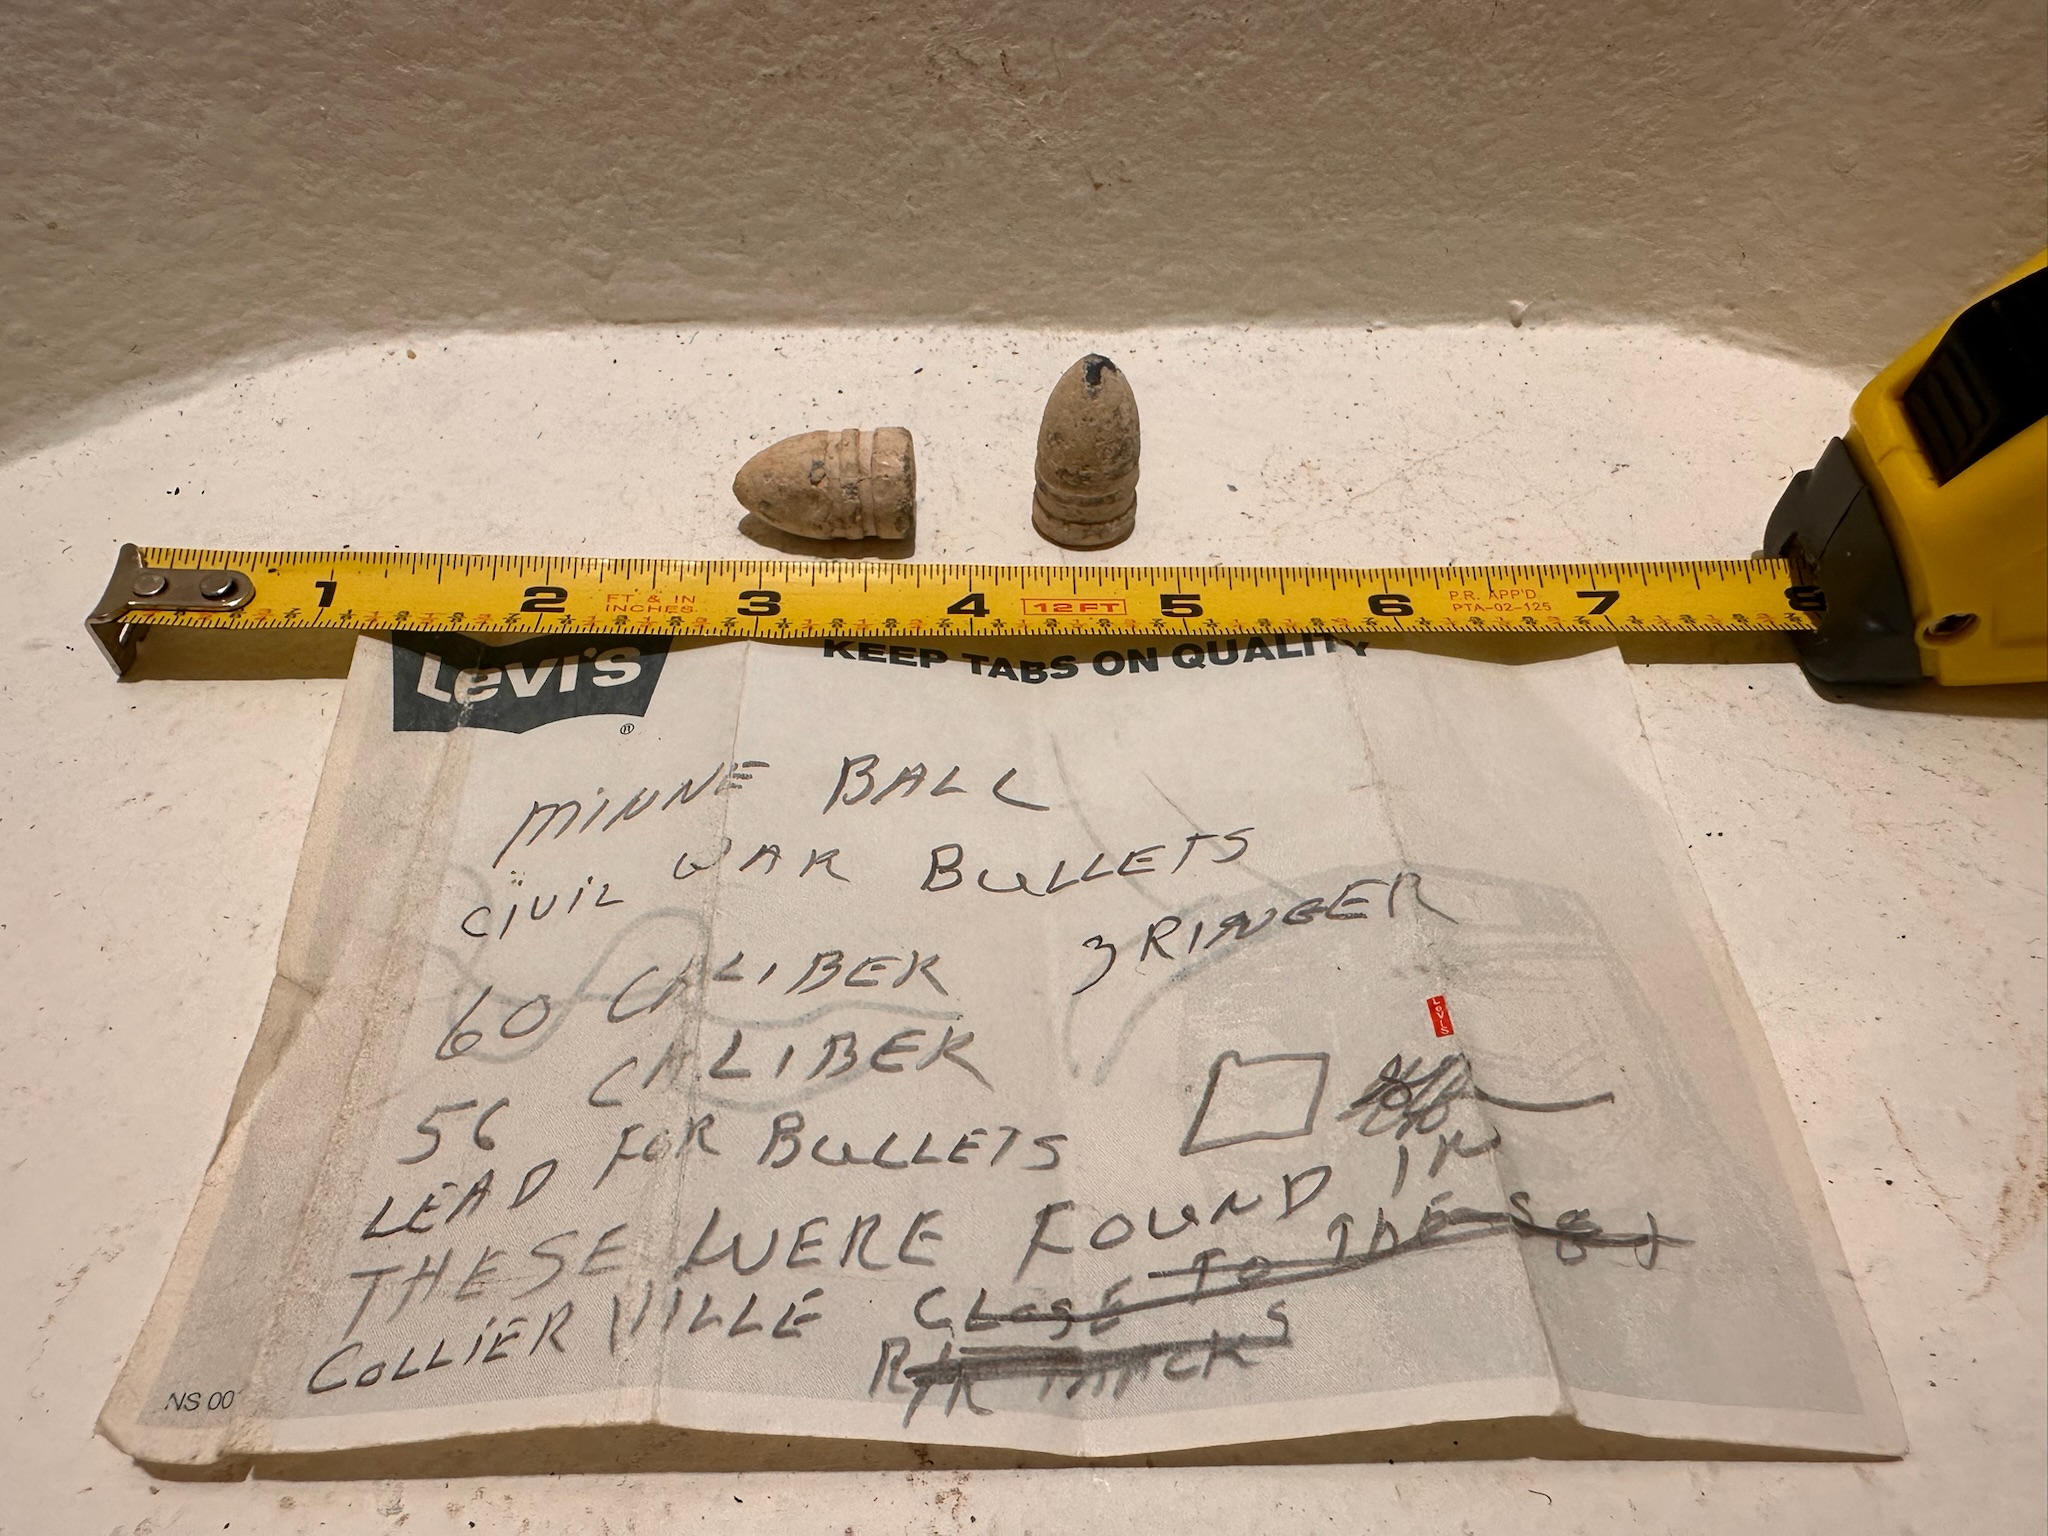 1 2 FT & IN INCHES 3 4 12 FT 5 6 P.R. APP'D PTA-02-125 7 8
Levi's ®
KEEP TABS ON QUALITY
MINNE BALL
CIVIL WAR BULLETS
60 CALIBER 3 RINGER
LEVI'S
56 CALIBER
LEAD FOR BULLETS
THESE WERE FOUND IN
COLLIERVILLE CLOSE TO THE
R/R TRACKS
NS 00